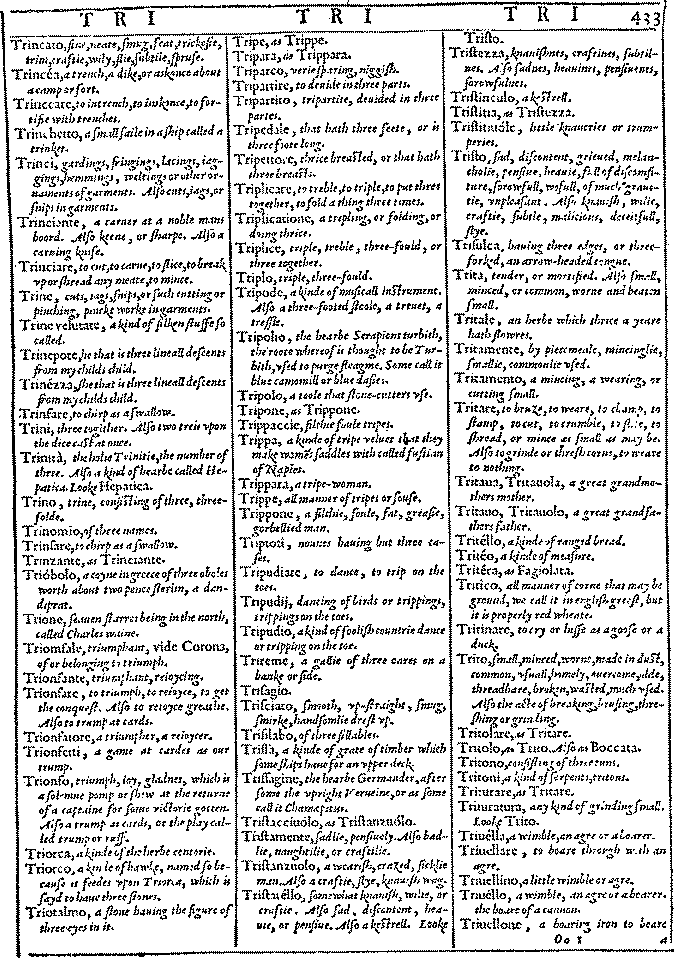 T R I
T R I
T R I
433
Trincato, fine, neate, smug, feat, tricksie,
trim, craftie, wily, slie, subtile, spruse.
Trincéa, a trench, a dike, or askonce about
a camp or fort.
Trinceare, to intrench, to inskonce, to for-
tifie with trenches.
Trinchetto, a small saile in a ship called a
trinket.
Trinci, gardings, fringings, lacings, iag-
gings, hemmings, weltings or other or-
naments of garments. Also cuts, iags, or
snips in garments.
Trinciante, a carver at a noble mans
boord. Also keene, or sharpe. Also a
caruing knife.
Trinciare, to cut, to carue, to slice, to break
vp or shread any meate, to mince.
Trine, cuts, iags, snips, or such cutting or
pinching, pinckt worke in garments.
Trine velutate, a kind of silken stuffe so
called.
Trinepote, he that is three lineall descents
from my childs child.
Trinézza, she that is three lineall descents
from my childs child.
Trinfare, to chirp as a swallow.
Trini, three together. Also two treis vpon
the dice cast at once.
Trinità, the holie Trinitie, the number of
three. Also a kind of hearbe called He-
patica. Looke Hepatica.
Trino, trine, consisting of three, three-
folde.
Trinomio, of three names.
Trinsare, to chirp as a swallow.
Trinzante, as Trinciante.
Trióbolo, a coyne in greece of three oboles
worth about two pence sterlin, a dan-
diprat.
Trione, seauen starres being in the north,
called Charles waine.
Triomfale, triumphant, vide Corona,
of or belonging to triumph.
Trionfante, triumphant, reioycing.
Trionfare, to triumph, to reioyce, to get
the conquest. Also to reioyce greatlie.
Also to trump at cards.
Trionfatore, a triumpher, a reioycer.
Trionfetti, a game at cardes as our
trump.
Trionfo, triumph, ioy, gladnes, which is
a solemne pomp or show at the returne
of a captaine for some victorie gotten.
Also a trump at cards, or the play cal-
led trump or ruff.
Triorca, a kinde of the herbe centorie.
Triorco, a kinde of hawke, named so be-
cause it feedes vpon Triorca, which is
sayd to haue three stones.
Triotalmo, a stone hauing the figure of
three eyes in it.
Tripe, as Trippe.
Tripara, as Trippara.
Triparco, verie sparing, niggish.
Tripartire, to deuide in three parts.
Tripartito, tripartite, deuided in three
partes.
Tripedale, that hath three feete, or is
three foote long.
Tripettore, thrice breasted, or that hath
three breasts.
Triplicare, to treble, to triple, to put three
together, to fold a thing three times.
Triplicatione, a trepling, or folding, or
doing thrice.
Triplice, triple, treble, three-fould, or
three together.
Triplo, triple, three-fould.
Tripode, a kinde of musicall instrument.
Also a three-footed stoole, a treuet, a
tressle.
Tripolio, the hearbe Serapiens turbith,
the roote whereof is thought to be Tur-
bith, vsed to purge fleagme. Some call it
blue camomill or blue dasies.
Tripolo, a toole that stone-cutters vse.
Tripone, as Trippone.
Trippaccie, filthie foule tripes.
Trippa, a kinde of tripe velues that they
make womens saddles with called fustian
of Naples.
Trippara, a tripe-woman.
Trippe, all manner of tripes or souse.
Trippone, a filthie, foule, fat, greasie,
gorbellied man.
Triptoti, nounes hauing but three ca-
ses.
Tripudiare, to dance, to trip on the
toes.
Tripudij, dancing of birds or trippings,
trippings on the toes.
Tripudio, a kind of foolish countrie dance
or tripping on the toe.
Trireme, a gallie of three oares on a
banke or side.
Trisagio.
Trisciato, smooth, vp-straight, smug,
smirke, handsomlie drest vp.
Trisilabo, of three sillables.
Trissa, a kinde of grate of timber which
some ships haue for an vpper deck.
Trissagine, the hearbe Germander, after
some the vpright Verueine, or as some
call it Chamapitus.
Tristacciuolo, as Tristanzuolo.
Tristamente, sadlie, pensiuely. Also bad-
lie, naughtilie, or craftilie.
Tristanzuolo, a wearish, crazed, sicklie
man. Also a craftie, slye, knauish wag.
Tristarello, somewhat knauish, wilie, or
craftie. Also sad, discontent, hea-
uie, or pensiue. Also a kestrell. Looke
Tristo.
Tristezza, knauishnes, craftines, subtil-
nes. Also sadnes, heauines, pensiuenes,
sorowfulnes.
Tristinculo, a kestrell.
Tristitia, as Tristezza.
Tristitiuole, little knaueries or trum-
peries.
Tristo, sad, discontent, grieued, melan-
cholie, pensiue, heauie, full of discomfi-
ture, sorowfull, wofull, of much graui-
tie, vnpleasant. Also knauish, wilie,
craftie, subtile, malicious, deceitfull,
slye.
Trisulca, hauing three edges, or three-
forked, an arrow-headed tongue.
Trita, tender, or mortified. Also small,
minced, or common, worne and beaten
small.
Tritale, an herbe which thrice a yeare
hath flowres.
Tritamente, by piecemeale, mincinglie,
smallie, commonlie vsed.
Tritamento, a mincing, a wearing, or
cutting small.
Tritare, to bruze, to weare, to champ, to
stamp, to cut, to crumble, to slice, to
shread, or mince as small as may be.
Also to grinde or thresh corne, to weare
to nothing.
Tritaua, Tritauola, a great grandmo-
thers mother.
Tritauo, Tritauolo, a great grandfa-
thers father.
Tritéllo, a kinde of ranged bread.
Tritéo, a kinde of measure.
Tritéra, as Fagiolata.
Tritico, all manner of corne that may be
ground, we call it in english greest, but
it is properly red wheate.
Tritinare, to cry or hisse as a goose or a
duck.
Trito, small, minced, worne, made in dust,
common, vsuall, homely, ouercome, olde,
threadbare, broken, wasted, much vsed.
Also the acte of breaking, brusing, thre-
shing or grinding.
Tritolare, as Tritare.
Tritolo, as Trito. Also as Boccata.
Tritono, consisting of three tuns.
Tritoni, a kind of serpents, tritons.
Triturare, as Tritare.
Trituratura, any kind of grinding small.
Looke Trito.
Triuélla, a wimble, an agre or a bearer.
Triuellare, to boare through with an
agre.
Triuellino, a little wimble or agre.
Triuello, a wimble, an agre or a bearer.
the boare of a cannon.
Triuellone, a boaring iron to boare
Oo 1
a